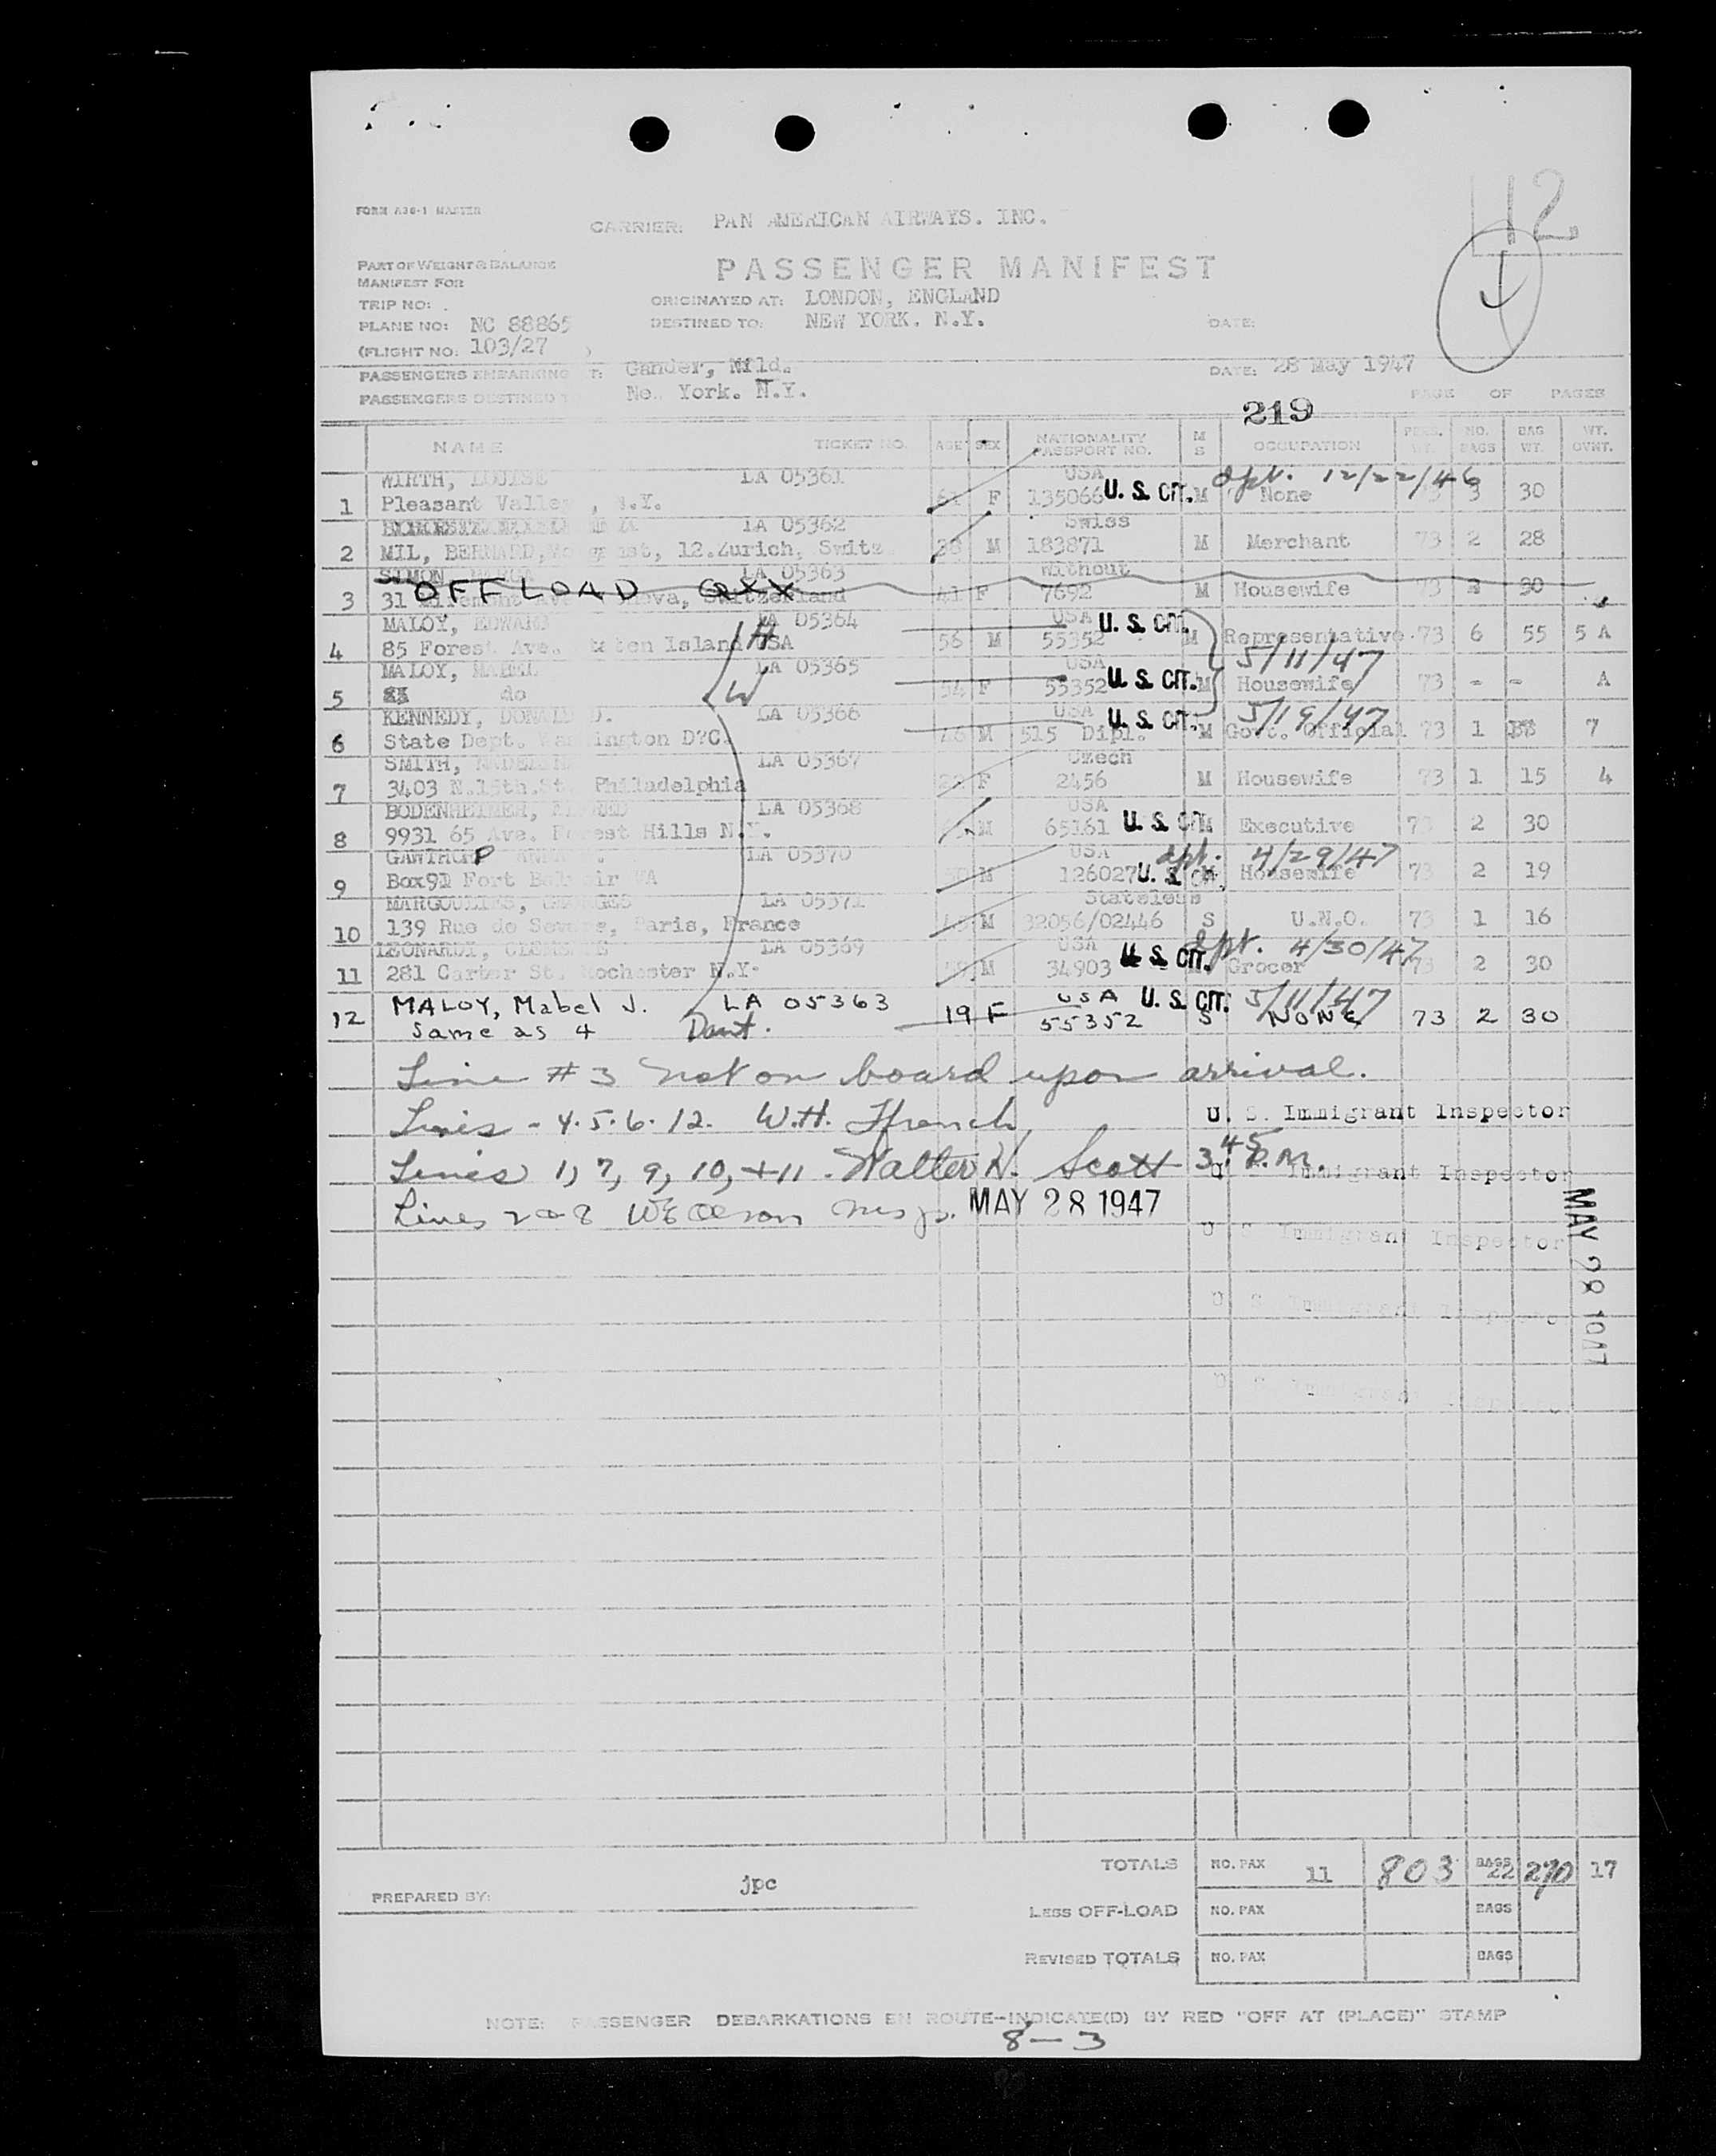 112
FORM A36-1 MASTER
CARRIER: PAN AMERICAN AIRWAYS. INC.
PART OF WEIGHT & BALANCE
MANIFEST FOR
PASSENGER MANIFEST
TRIP NO:
ORIGINATED AT: LONDON, ENGLAND
PLANE NO: NC 88865
DESTINED TO: NEW YORK. N.Y.
DATE:
(FLIGHT NO: 103/27 )
PASSENGERS EMBARKING T: Gander, Nfld.
DATE: 28 May 1947
PASSENGERS DESTINED T Ne York. N.Y.
PAGE OF PAGES
219
NAME TICKET NO. AGE SEX NATIONALITY PASSPORT NO. M S OCCUPATION PERS. WT. NO. BAGS BAG WT. WT. OVRT.
WIRTH, LOUISE LA 05361 USA dpt. 12/22/46
1 Pleasant Valle , N.Y. 61 F 135066 U. S. CIT. M None 3 30
LA 05362 Swiss
2 MIL, BERNARD, st, 12.Zurich, Switz 38 M 183871 M Merchant 73 2 28
SIMON LA 05363 Without
OFFLOAD QXX
3 31 Ave Geneva, Switzerland 41 F 7692 M Housewife 73 30
MALOY, EDWARD LA 05364 USA U. S. CIT.
4 85 Forest Ave. Staten Island USA H 56 M 55352 M Representative 73 6 55 5 A
MALOY, MABEL LA 05365 USA 5/11/47
5 do W 54 F 55352 U. S. CIT. M Housewife 73 - - A
KENNEDY, DONALD D. LA 05366 USA U. S. CIT. 5/19/47
6 State Dept. Washington D?C. 46 M 515 Dipl. M Govt. Official 73 1 7
SMITH, LA 05367 Czech
7 3403 N.15th.St. Philadelphia 22 F 2456 M Housewife 73 1 15 4
BODENHEIMER, LA 05368 USA
8 9931 65 Ave. Forest Hills N.Y. M 65161 U. S. CIT. M Executive 73 2 30
GAWTHROP LA 05370 USA dpt. 4/29/47
9 Box91 Fort Belvoir VA 50 M 126027 U. S. CIT. Housewife 73 2 19
MARGOULIES, GEORGES LA 05371 Stateless
10 139 Rue de Sevres, Paris, France M 32056/02446 S U.N.O. 73 1 16
LEONARDI, LA 05369 USA dpt. 4/30/47
11 281 Carter St. Rochester N.Y. M 34903 U. S. CIT. Grocer 73 2 30
MALOY, Mabel J. LA 05363 USA U. S. CIT. 5/11/47
12 Same as 4 Daut. 19 F 55352 S NONE 73 2 30
Line #3 not on board upon arrival.
Lines - 4.5.6.12. W.H. Ffrench U. S. Immigrant Inspector
Lines 1, 7, 9, 10, + 11. Walter H. Scott 3 45 P.M. U. Immigrant Inspector
Lines 2 & 8 W E Olson MAY 28 1947
U S Immigrant Inspector
MAY 28 1947
U S Immigrant Inspector
TOTALS NO. PAX 11 803 BAGS 22 270 17
PREPARED BY: jpc
LESS OFF-LOAD NO. PAX BAGS
REVISED TOTALS NO. PAX BAGS
NOTE: PASSENGER DEBARKATIONS EN ROUTE-INDICATE(D) BY RED "OFF AT (PLACE)" STAMP
8-3